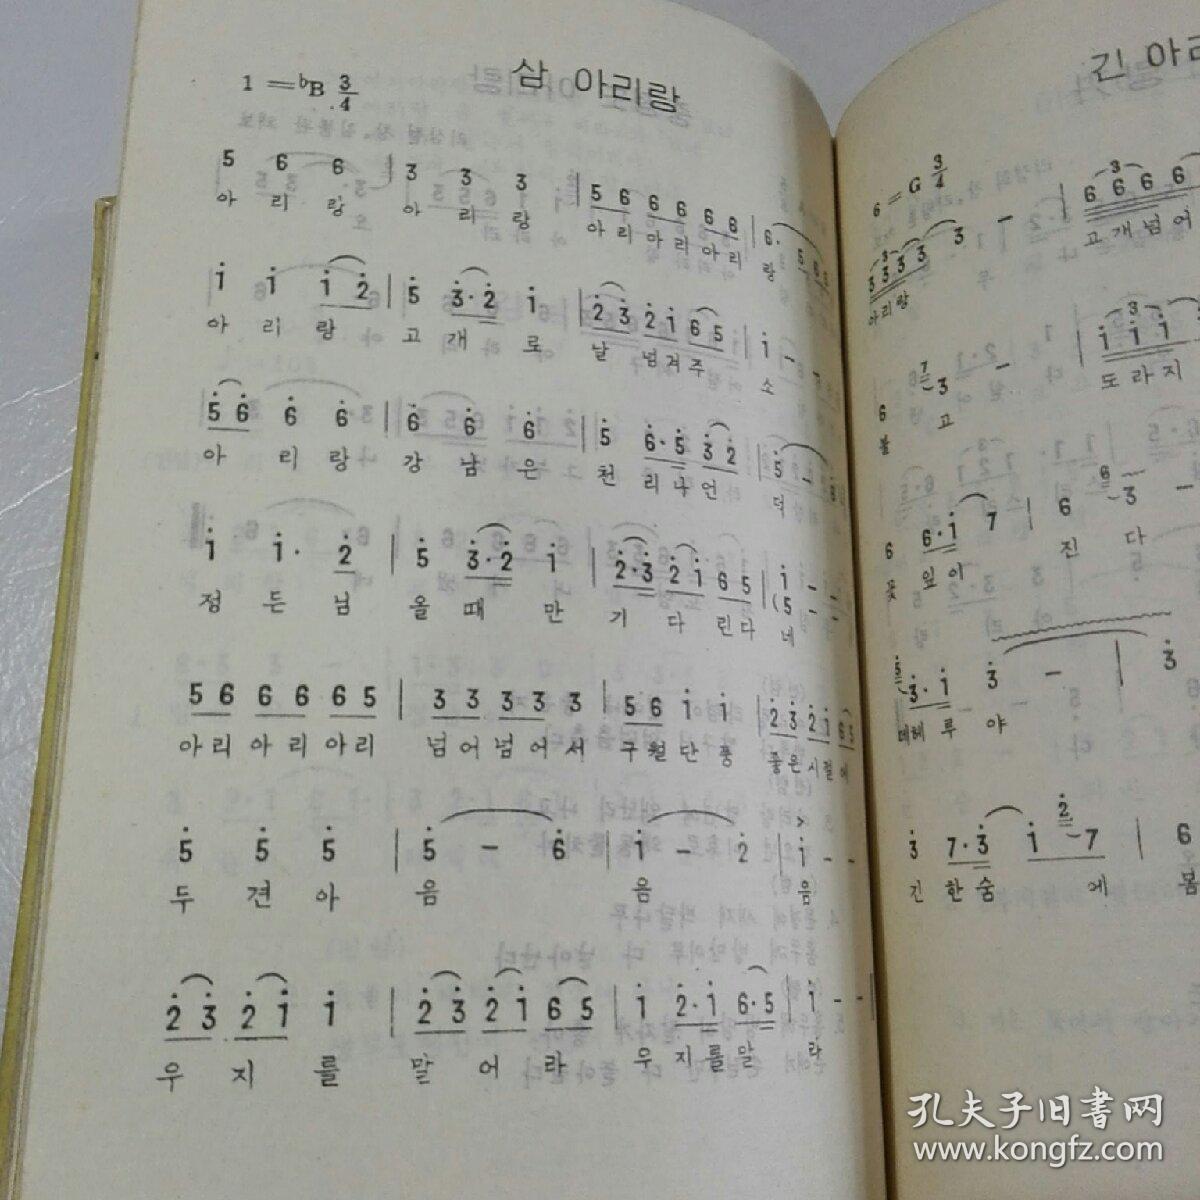 삼 아리랑
1=♭B 3/4
5 6 6 | 3 3 3 | 5 6 6 6 6 6 | 6·
아 리 랑 아 리 랑 아리 아리 아리 랑
i i i 2 | 5 3·2 i | 2 3 2 i 6 5 | i - -
아 리 랑 고 개 로 날 넘겨주 소
5 6 6 6 | 6 6 6 | 5 6·5 3 2 | 5 -
아 리 랑 강 남 은 천 리나 언 덕
i i· 2 | 5 3·2 i | 2·3 2 i 6 5 | i - -
(5 - -
정 든 님 올 때 만 기 다 린다 네
5 6 6 6 6 5 | 3 3 3 3 3 | 5 6 i i | 2 3 2 i 6 5
아리 아리 아리 넘어넘어서 구월단풍 좋은시절에
5 5 5 | 5 - 6 | i - 2 | i - -
두 견 아 음 음 음
2 3 2 i i | 2 3 2 i 6 5 | i 2·i 6·5 | i - -
우 지 를 말 어 라 우 지를말 라
긴 아리
6=G 3/4
3 3 3 3 3 - | 6 6 6 6
아리랑 고개넘어
6 3 - | i i i
불 고 도라지
6 6·i 7 | 6 3 -
꽃 잎이 진 다
3·i 3 - | 3
데헤 루 야
3 7·3 i 7 | 6
긴 한숨 에 봄
孔夫子旧书网
www.kongfz.com